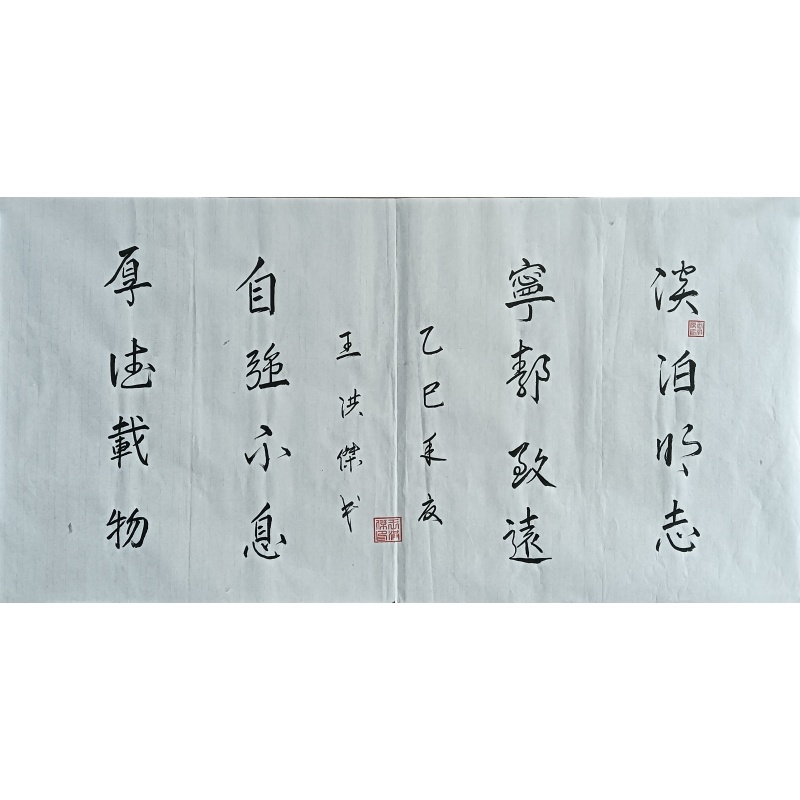 淡泊明志
寧靜致遠
乙巳年夏
王洪傑书
自強不息
厚德載物